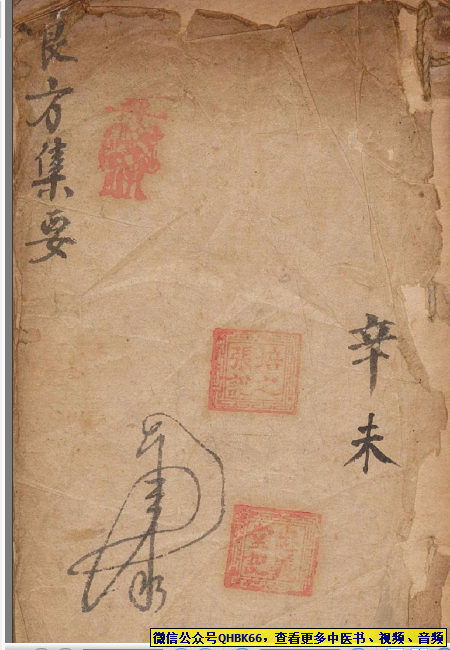 良方集要
辛未
培之
張記
微信公众号QHBK66，查看更多中医书、视频、音频